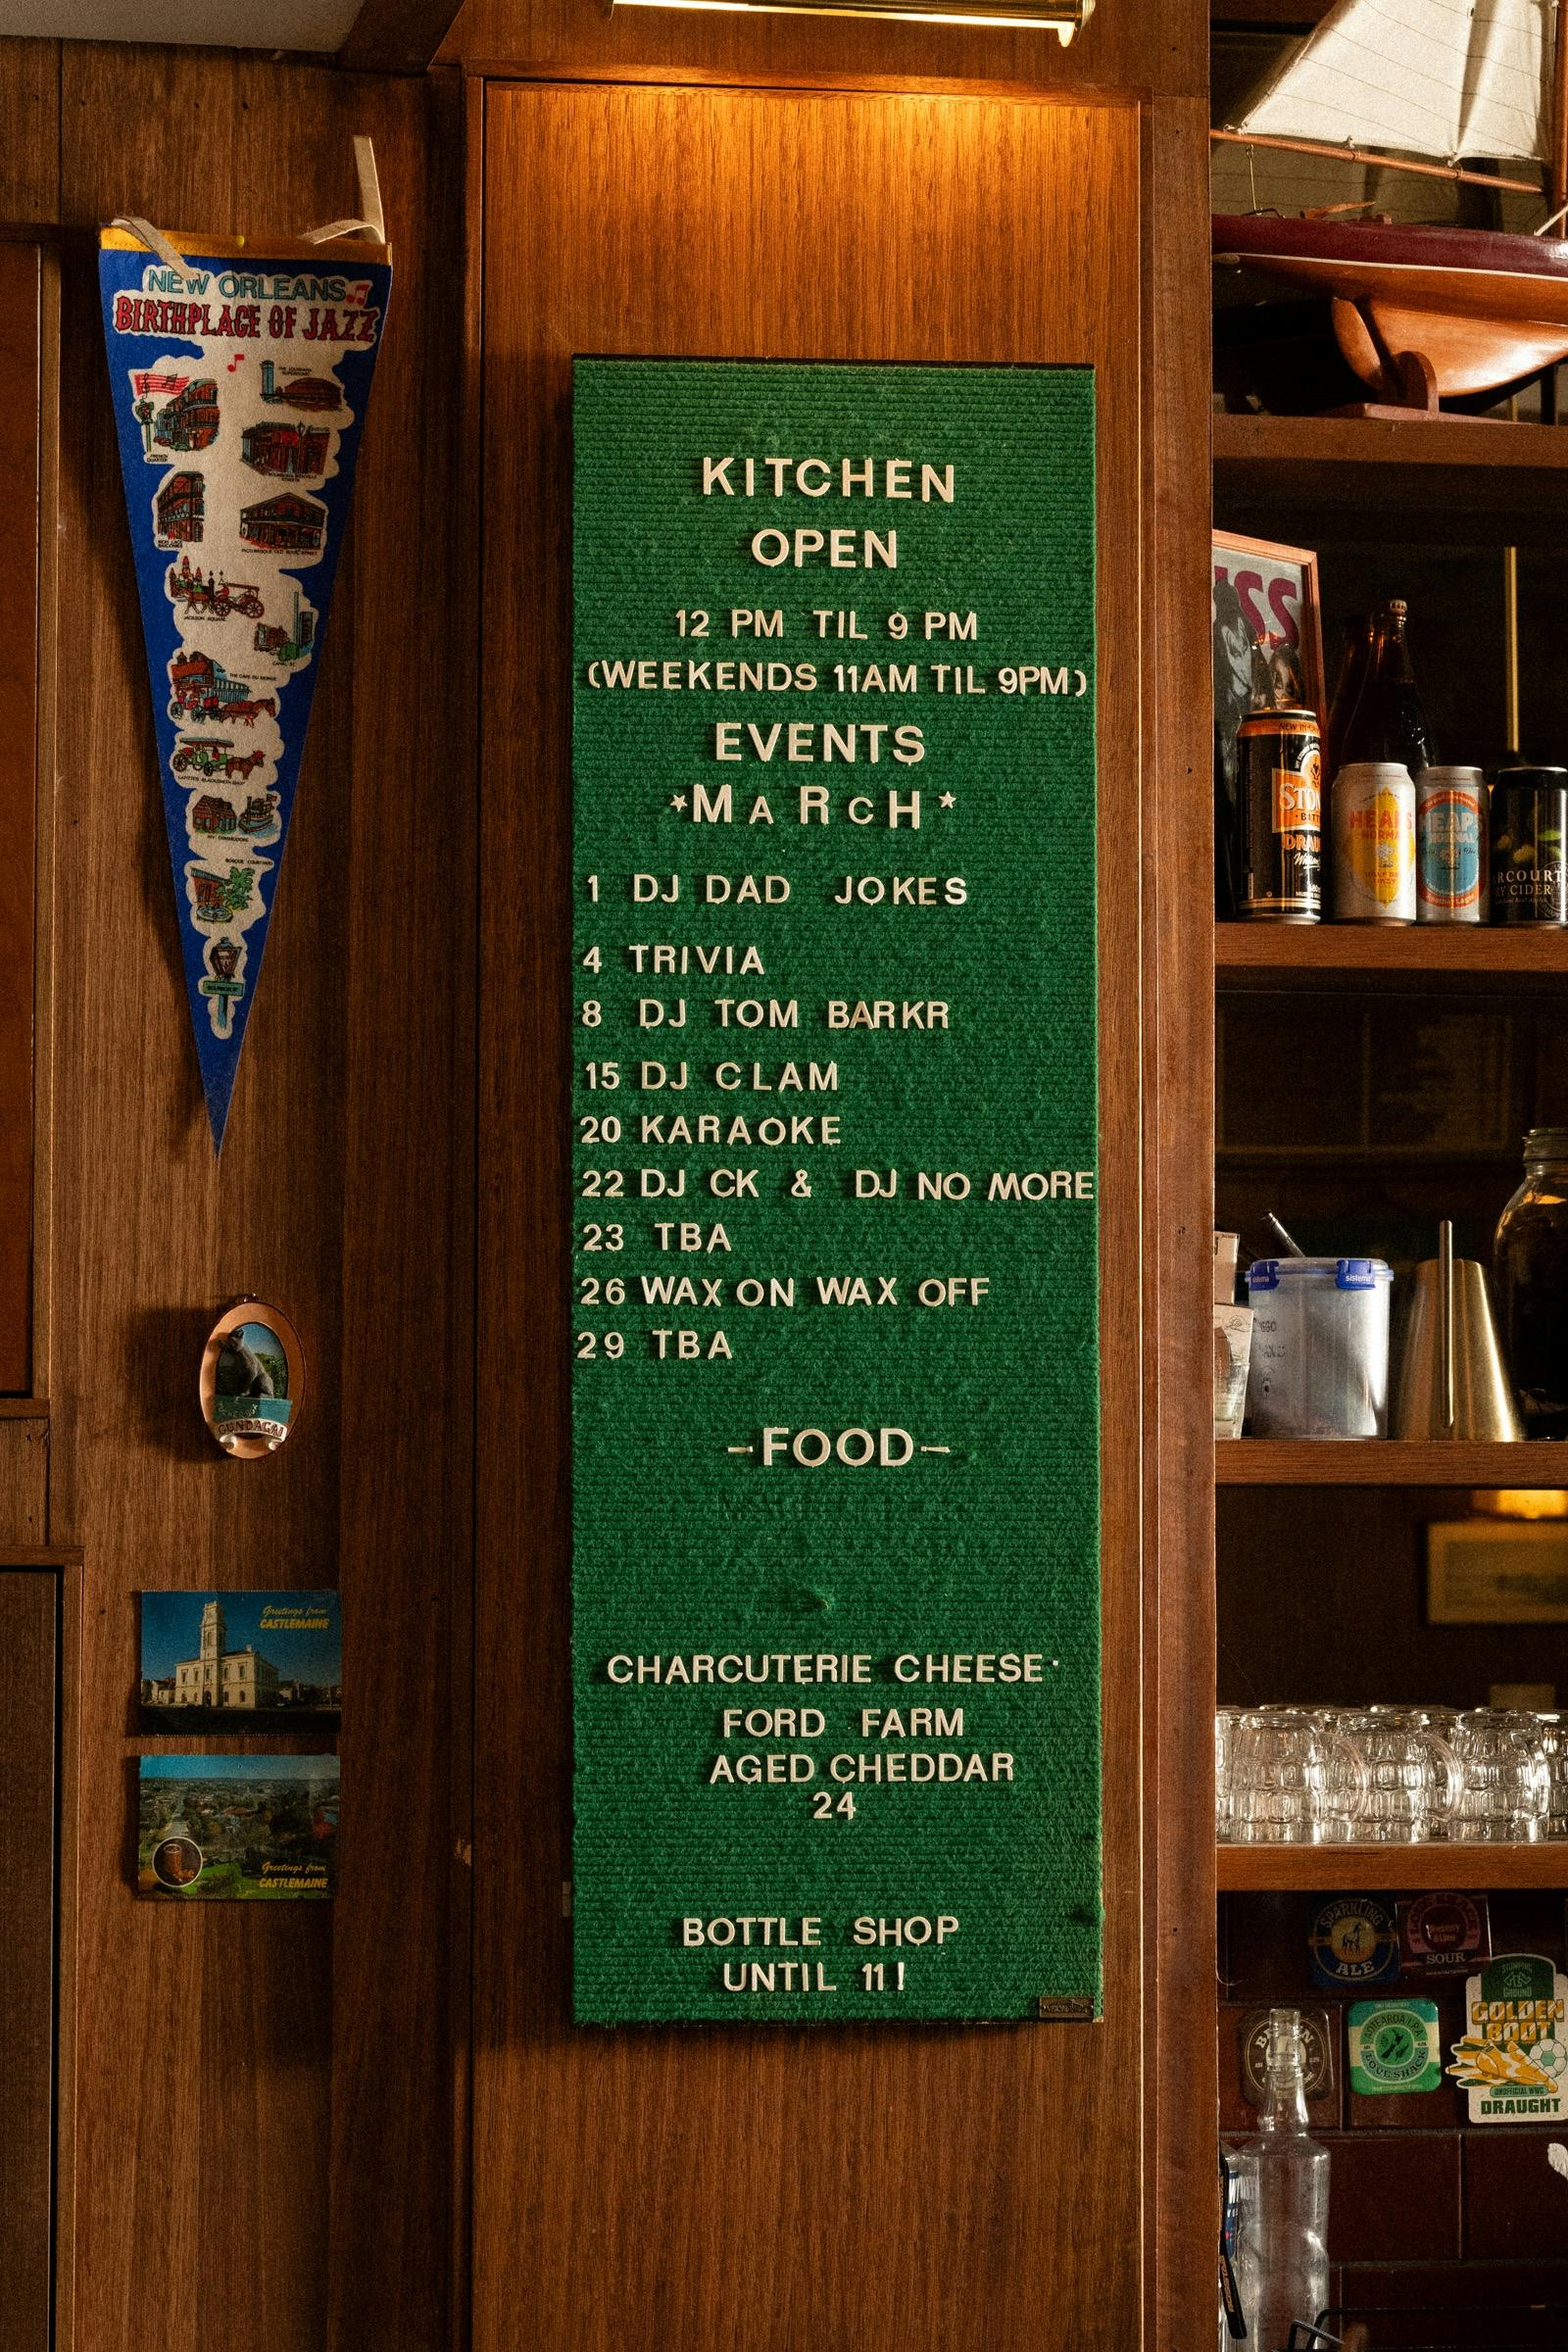 NEW ORLEANS
BIRTHPLACE OF JAZZ
FRENCH QUARTER
JACKSON SQUARE
GUNDAGAI
Greetings from
CASTLEMAINE
Greetings from
CASTLEMAINE
KITCHEN
OPEN
12 PM TIL 9 PM
(WEEKENDS 11AM TIL 9PM)
EVENTS
*MaRcH*
1 DJ DAD JOKES
4 TRIVIA
8 DJ TOM BARKR
15 DJ CLAM
20 KARAOKE
22 DJ CK & DJ NO MORE
23 TBA
26 WAX ON WAX OFF
29 TBA
-FOOD-
CHARCUTERIE CHEESE·
FORD FARM
AGED CHEDDAR
24
BOTTLE SHOP
UNTIL 11!
sistema
sistema
SPARKLING
ALE
SOUR
AOTEAROA I.P.A
LOVE SHACK
GOLDEN
BOOT
DRAUGHT